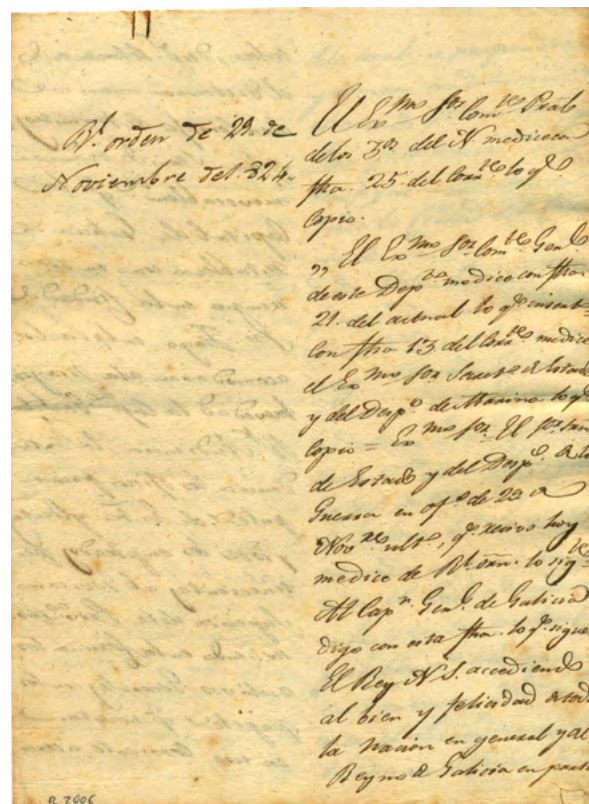 Rl. orden de 29. de
Noviembre del. 824.
El Exmo Sor Comte Prāl
delos 3os del N me dice con
fha. 25. del Corrte lo qe.
Copio.
„ El Exmo Sor. Comte Genl
de este Depto me dice con fha
21. del actual lo qe. insert
Con fha 13. del Corrte me dice
el Exmo Sor Secreto de Estado
y del Despo. de Marina lo qe
Copio = Exmo Sor. El Sor. Secr
de Estado y del Despo. de la
Guerra en ofo. de 22 de
Novre ultō, qe. recivo hoy
me dice de Rl. orn. lo sigte
Al Capn. Genl. de Galicia
digo con esta fha. lo qe. sigue
El Rey N. S. accediendo
al bien y felicidad de tod
la Nacion en general y al
Reyno de Galicia en parti
R. 2006